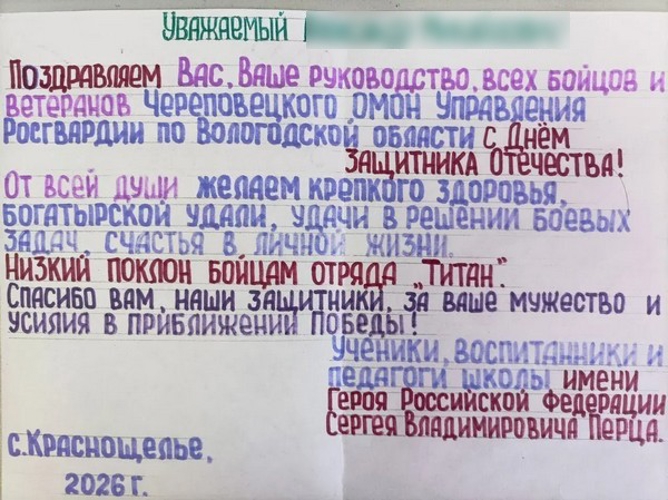 Уважаемый
Поздравляем Вас, Ваше руководство, всех бойцов и
ветеранов Череповецкого ОМОН Управления
Росгвардии по Вологодской области с Днём
защитника Отечества!
От всей души желаем крепкого здоровья,
богатырской удали, удачи в решении боевых
задач, счастья в личной жизни.
Низкий поклон бойцам отряда „Титан".
Спасибо вам, наши защитники, за ваше мужество и
усилия в приближении Победы!
Ученики, воспитанники и
педагоги школы имени
Героя Российской Федерации
Сергея Владимировича Перца.
с.Краснощелье,
2026 г.